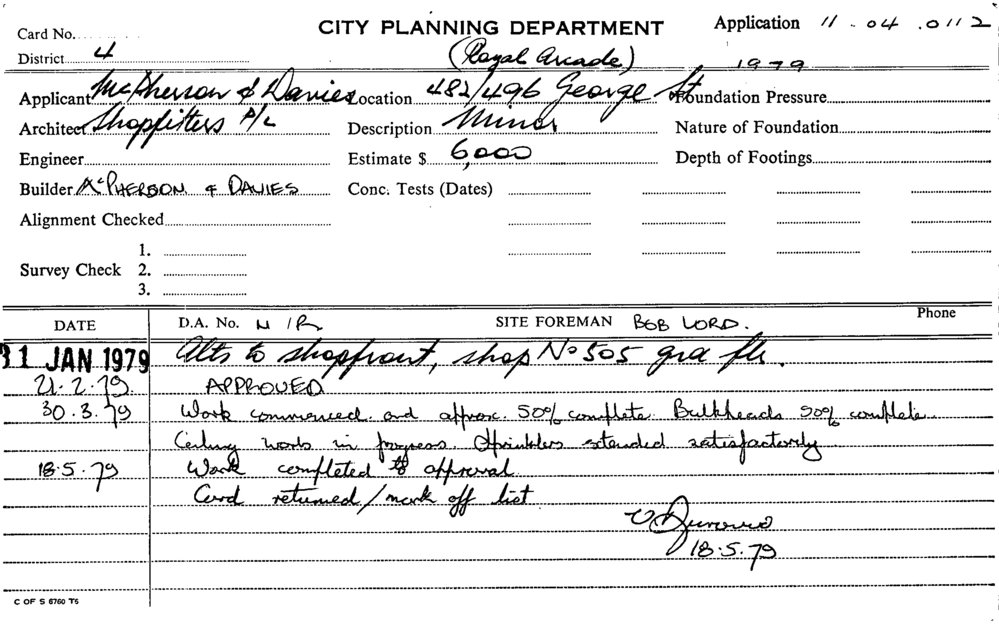 CITY PLANNING DEPARTMENT
Application 11 - 04 . 0112
Card No.
District 4 (Royal Arcade) 1979
Applicant McPherson & Davies Location 482/496 George St Foundation Pressure
Architect Shopfitters P/L Description Minor Nature of Foundation
Engineer Estimate $ 6,000 Depth of Footings
Builder McPHERSON & DAVIES Conc. Tests (Dates)
Alignment Checked
1.
Survey Check 2.
3.
DATE D.A. No. N/R SITE FOREMAN BOB LORD. Phone
31 JAN 1979 Alts to shopfront, shop No 505 grd flr.
21.2.79. APPROVED
30.3.79 Work commenced and approx. 50% complete. Bulkheads 90% complete
Ceiling works in progress. Sprinklers extended satisfactorily
18.5.79 Work completed to approval
Card returned/mark off list
18.5.79
C OF S 6760 T5